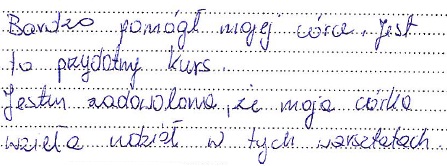 Bardzo pomógł mojej córce. Jest
to przydatny kurs.
Jestem zadowolona, że moja córka
wzięła udział w tych warsztatach.